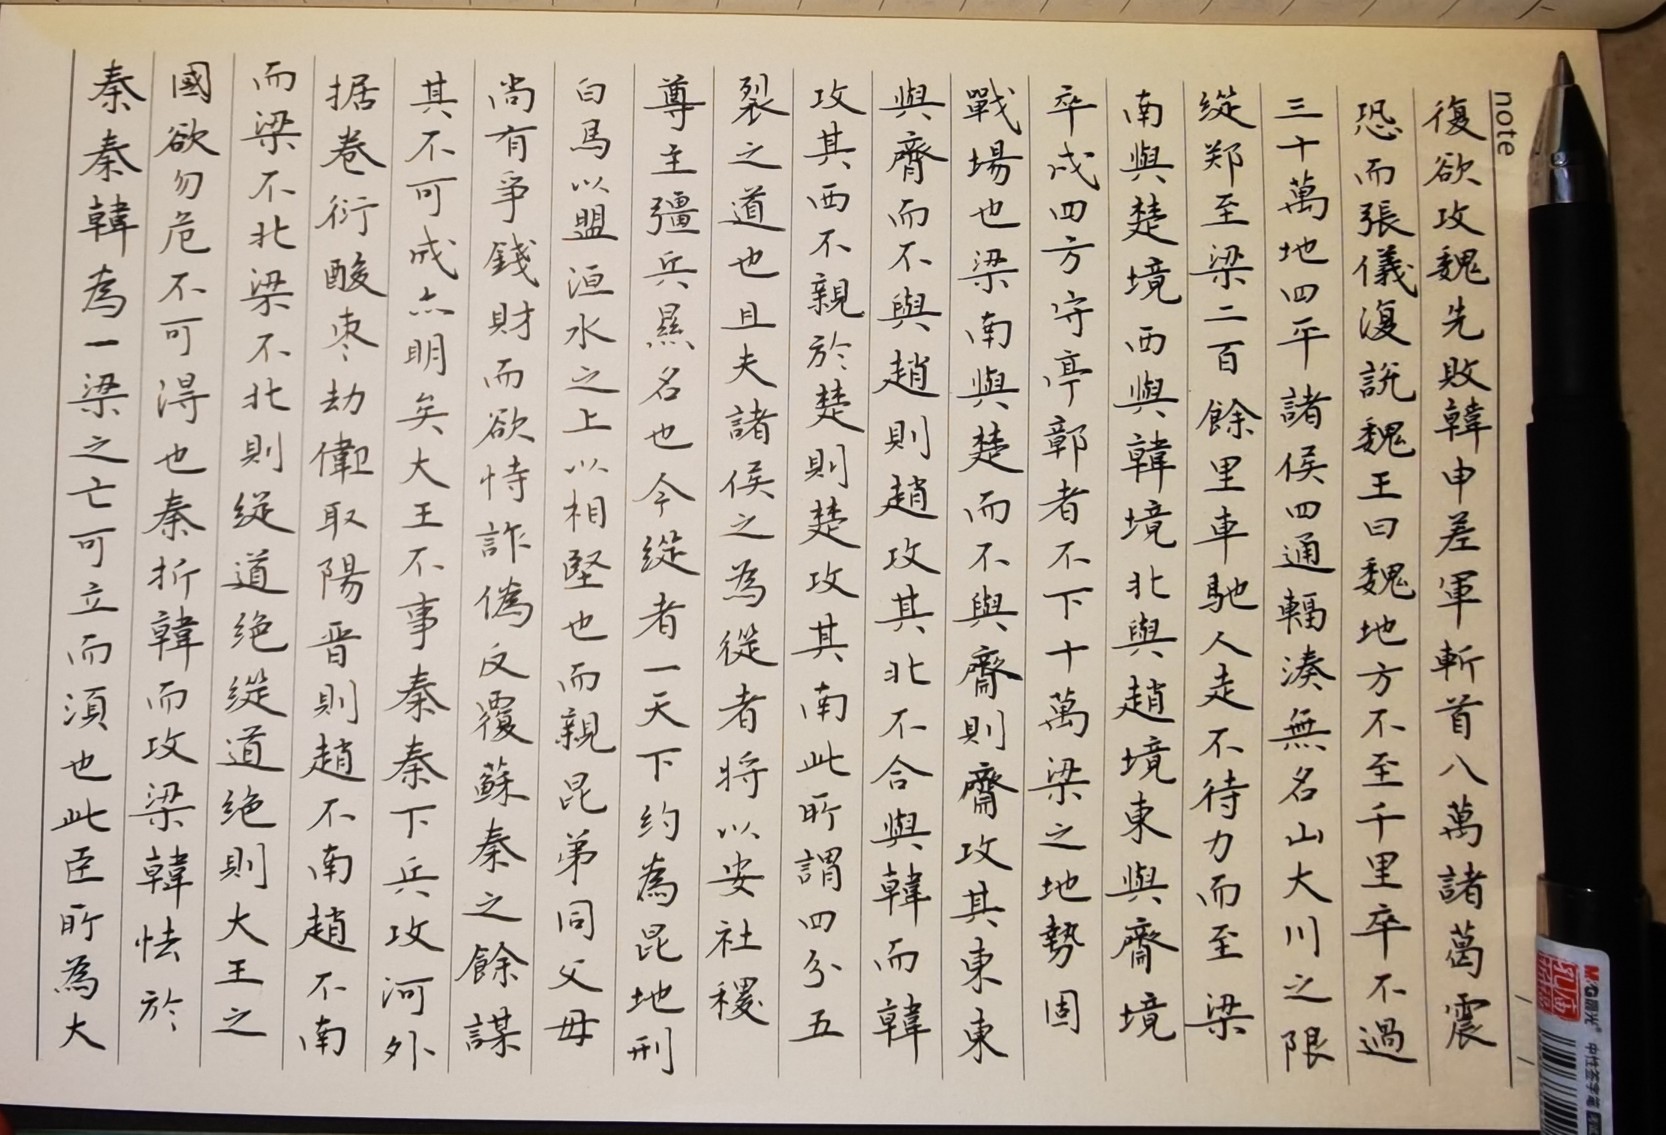 note
復欲攻魏先敗韓申差軍斬首八萬諸葛震
恐而張儀復說魏王曰魏地方不至千里卒不過
三十萬地四平諸侯四通輻湊無名山大川之限
縱郑至梁二百餘里車馳人走不待力而至梁
南與楚境西與韓境北與趙境東與齊境
卒戍四方守亭鄣者不下十萬梁之地勢固
戰場也梁南與楚而不與齊則齊攻其東東
與齊而不與趙則趙攻其北不合與韓而韓
攻其西不親於楚則楚攻其南此所謂四分五
裂之道也且夫諸侯之為從者將以安社稷
尊主彊兵顯名也今縱者一天下约為昆地刑
白馬以盟洹水之上以相堅也而親昆弟同父母
尚有爭錢財而欲恃詐偽反覆蘇秦之餘謀
其不可成亦明矣大王不事秦秦下兵攻河外
据卷衍酸枣劫衛取陽晋則趙不南趙不南
而梁不北梁不北則縱道绝縱道绝則大王之
國欲勿危不可得也秦折韓而攻梁韓怯於
秦秦韓為一梁之亡可立而須也此臣所為大
M&G晨光
孔庙祈福
中性签字笔